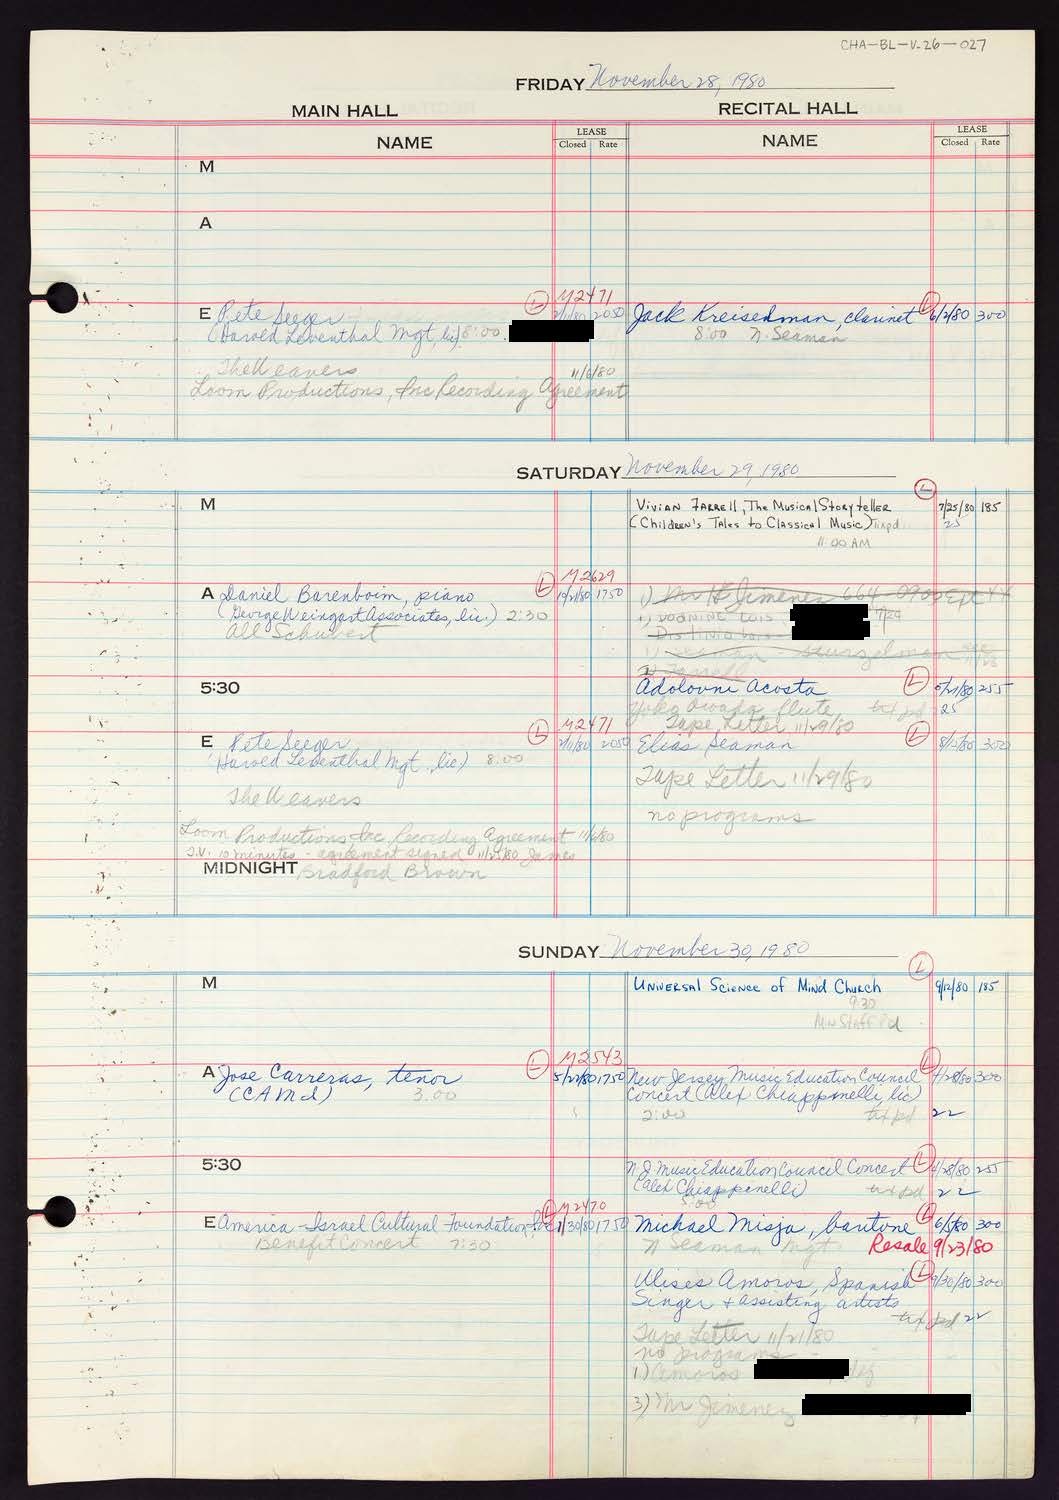 CHA-BL-V-26-027
FRIDAY November 28, 1980
MAIN HALL
RECITAL HALL
NAME
LEASE
Closed Rate
NAME
LEASE
Closed Rate
M
A
E Pete Seeger
(Harold Leventhal Mgt, Inc) 8:00
L M2471
2/11/80 2050
The Weavers
11/6/80
Loom Productions, Inc Recording Agreement
Jack Kreiselman, clarinet L 6/2/80 300
8:00 N. Seaman
SATURDAY November 29, 1980
M
Vivian Farrell, The Musical Storyteller L 7/25/80 185
(Children's Tales to Classical Music) 25
11:00 AM
A Daniel Barenboim, piano
(George Weingart Associates, Inc.) 2:30
All Schubert
L M2629
10/21/80 1750
1) Mr H Jimenez 664-0900 Ept 44
7/24
5:30
Adolovni Acosta L 255
flute txt pd 25
Tape Letter 11/29/80
E Pete Seeger
(Harold Leventhal Mgt, Inc) 8:00
L M2471
2/11/80 2050
The Weavers
Loom Productions, Inc, Recording Agreement 11/6/80
T.V. 10 minutes - agreement signed 11/25/80 James
MIDNIGHT Bradford Brown
Elias Seaman L 300
Tape Letter 11/29/80
no programs
SUNDAY November 30, 1980
M
Universal Science of Mind Church L 9/12/80 185
9:30
A Jose Carreras, tenor
(CAMI) 3:00
L M2543
5/22/80 1750
New Jersey Music Education Council L 4/28/80 300
Concert (Alex Chiappinelli, Inc)
2:00 txt pd 22
5:30
N J Music Education Council Concert L 4/28/80 255
(Alex Chiappinelli) txt pd 22
5:00
E America-Israel Cultural Foundation, Inc
Benefit Concert 7:30
L M2470
1/30/80 1750
Michael Misja, baritone L 6/5/80 300
N Seaman Mgt
Resale 9/23/80
Ulises Amoros, Spanish L 9/30/80 300
Singer + assisting artists
txt pd 22
Tape Letter 11/21/80
no programs -
1) Amoros
3) Mr Jimenez